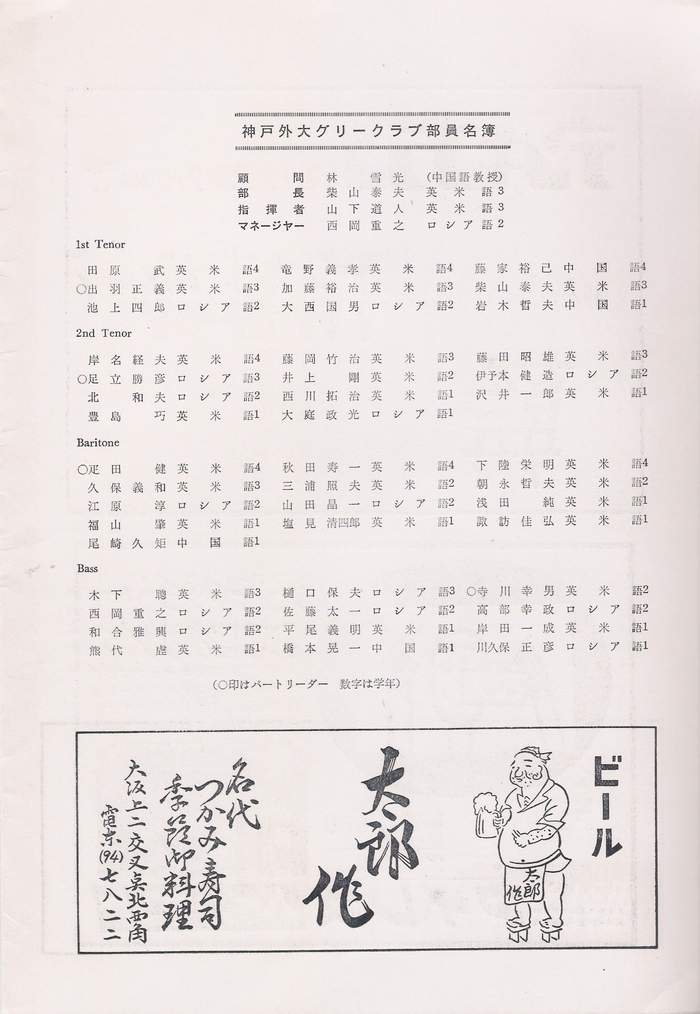 神戸外大グリークラブ部員名簿
顧問 林雪光 (中国語教授)
部長 柴山泰夫 英米語3
指揮者 山下道人 英米語3
マネージャー 西岡重之 ロシア語2
1st Tenor
田原武英米語4 竜野義孝英米語4 藤家裕己中国語4
○出羽正義英米語3 加藤裕治英米語3 柴山泰夫英米語3
池上四郎ロシア語2 大西国男ロシア語2 岩木哲夫中国語1
2nd Tenor
岸名経夫英米語4 藤岡竹治英米語3 藤田昭雄英米語3
○足立勝彦ロシア語3 井上剛英米語2 伊予本健造ロシア語2
北和夫ロシア語2 西川拓治英米語1 沢井一郎英米語1
豊島巧英米語1 大庭政光ロシア語1
Baritone
○疋田健英米語4 秋田寿一英米語4 下陸栄明英米語4
久保義和英米語3 三浦照夫英米語2 朝永哲夫英米語2
江原淳ロシア語2 山田晶一ロシア語2 浅田純英米語1
福山肇英米語1 塩見清四郎英米語1 諏訪佳弘英米語1
尾崎久矩中国語1
Bass
木下聰英米語3 樋口保夫ロシア語3 ○寺川幸男英米語2
西岡重之ロシア語2 佐藤太一ロシア語2 高部幸政ロシア語2
和合雅興ロシア語2 平尾義明英米語1 岸田一成英米語1
熊代 英米語1 橋本晃一中国語1 川久保正彦ロシア語1
(○印はパートリーダー 数字は学年)
ビール
太郎
作
太郎
作
名代
つかみ寿司
季節御料理
大阪上二交叉点北西角
電東(94)七八二二